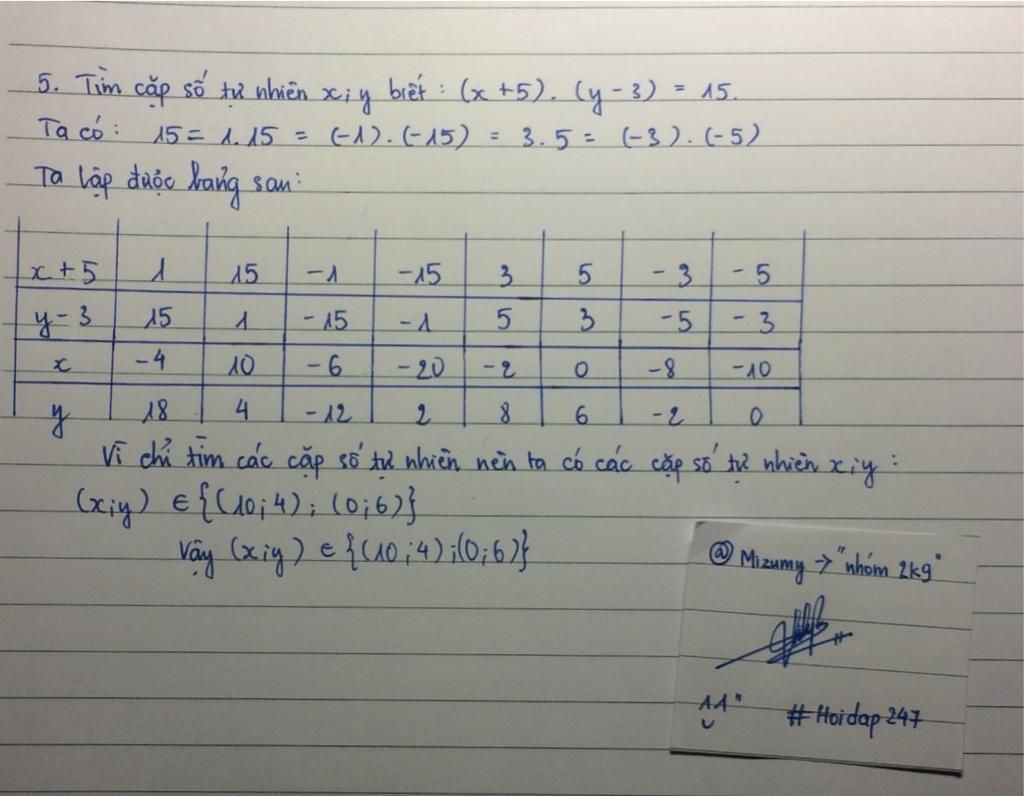 5. Tìm cặp số tự nhiên x;y biết: (x+5). (y-3) = 15.
Ta có: 15 = 1.15 = (-1).(-15) = 3.5 = (-3).(-5)
Ta lập được bảng sau:
x+5 1 15 -1 -15 3 5 -3 -5
y-3 15 1 -15 -1 5 3 -5 -3
x -4 10 -6 -20 -2 0 -8 -10
y 18 4 -12 2 8 6 -2 0
Vì chỉ tìm các cặp số tự nhiên nên ta có các cặp số tự nhiên x;y:
(x;y) ∈ {(10;4); (0;6)}
Vậy (x;y) ∈ {(10;4);(0;6)}
@ Mizumy → "nhóm 2kg"
11"
#Hoidap247